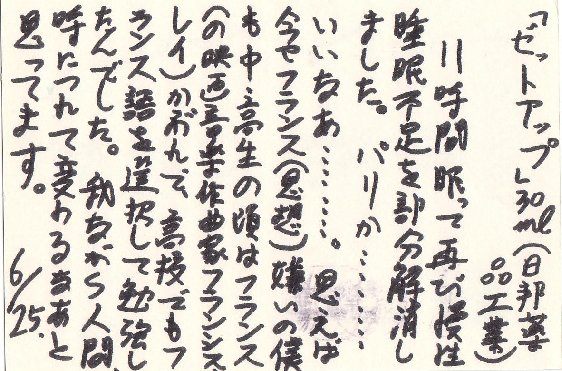 「ゼットアップ」30ml(日邦薬
品工業)
11時間眠って再び慢性
睡眠不足を部分解消し
ました。パリか……
いいなあ………。思えば
今やフランス(思想)嫌いの僕
も中・高生の頃はフランス
(の映画音楽作曲家フランシス・
レイ)かぶれで、高校でもフ
ランス語を選択して勉強し
たんでした。我ながら人間、
時につれて変わるなあと
思ってます。
6/25.